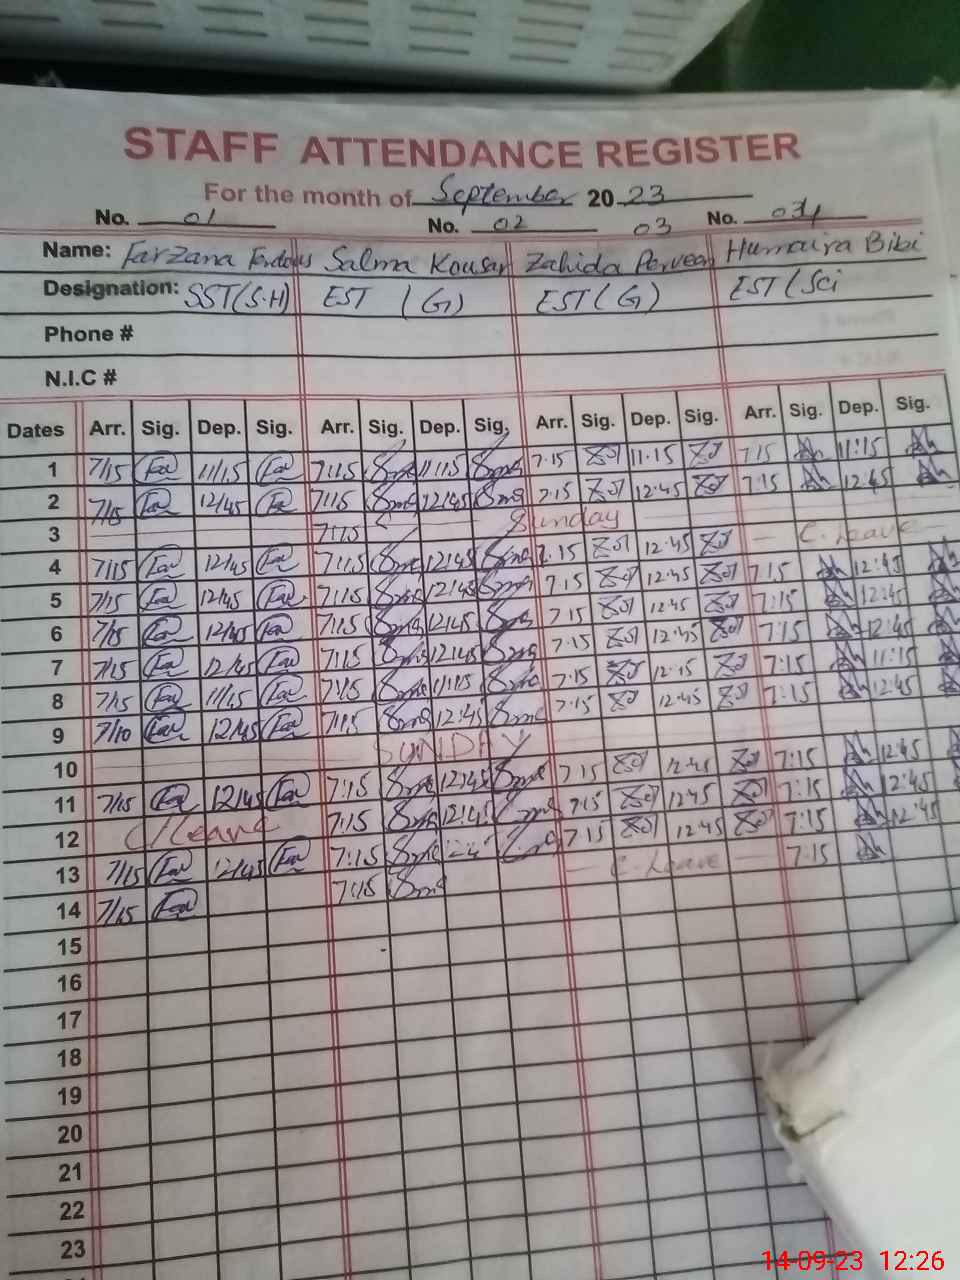 STAFF ATTENDANCE REGISTER
For the month of September 2023
No. 01 No. 02 03 No. 04
Name: Farzana Ferdous Salma Kousar Zahida Perveen Humaira Bibi
Designation: SST(S.H) EST (G) EST (G) EST (Sci
Phone #
N.I.C #
Dates Arr. Sig. Dep. Sig. Arr. Sig. Dep. Sig. Arr. Sig. Dep. Sig. Arr. Sig. Dep. Sig.
1 7/15 11/15 7:15 11:15 7:15 11:15 7:15 11:15
2 7/15 12/45 7:15 12:45 7:15 12:45 7:15 12:45
3 7:15 Sunday C. Leave
4 7/15 12/45 7:15 12:45 7:15 12:45 7:15 12:45
5 7/15 12/45 7:15 12:45 7:15 12:45 7:15 12:45
6 7/15 12/45 7:15 12:45 7:15 12:45 7:15 12:45
7 7/15 12/45 7:15 12:45 7:15 12:45 7:15 11:15
8 7/15 11/15 7:15 11:15 7:15 7:15 12:45
9 7/10 12/45 7:15 12:45 7:15 12:45
10 SUNDAY
11 7/15 12/45 7:15 12:45 7:15 12:45 7:15 12:45
12 C/Leave 7:15 12:45 7:15 12:45 7:15 12:45
13 7/15 12/45 7:15 7:15 12:45 7:15 12:45
14 7/15 7:15 C. Leave 7:15
15
16
17
18
19
20
21
22
23
14-09-23 12:26